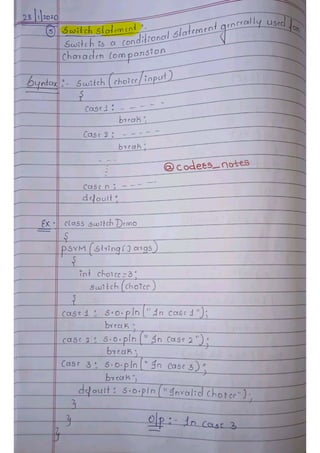 28/1/2020
⑤ Switch Statement :
Switch is a conditional statement generally used for
Character Comparsion
Syntax :- Switch (choice/input)
{
Case 1 : - - - - -
break;
Case 2 : - - - - -
break;
- - -
@codees_notes
case n : - - - -
default :
Ex - class switch Demo
{
PSVM (String[] args)
{
int choice=3;
switch (choice)
{
case 1 : S.o.pln ("In case 1");
break;
case 2 : S.o.pln ("In case 2");
break;
Case 3 : S.o.pln ("In case 3);
break;
default : S.o.pln ("Invalid Choice");
}
} O/p :- In case 3
}